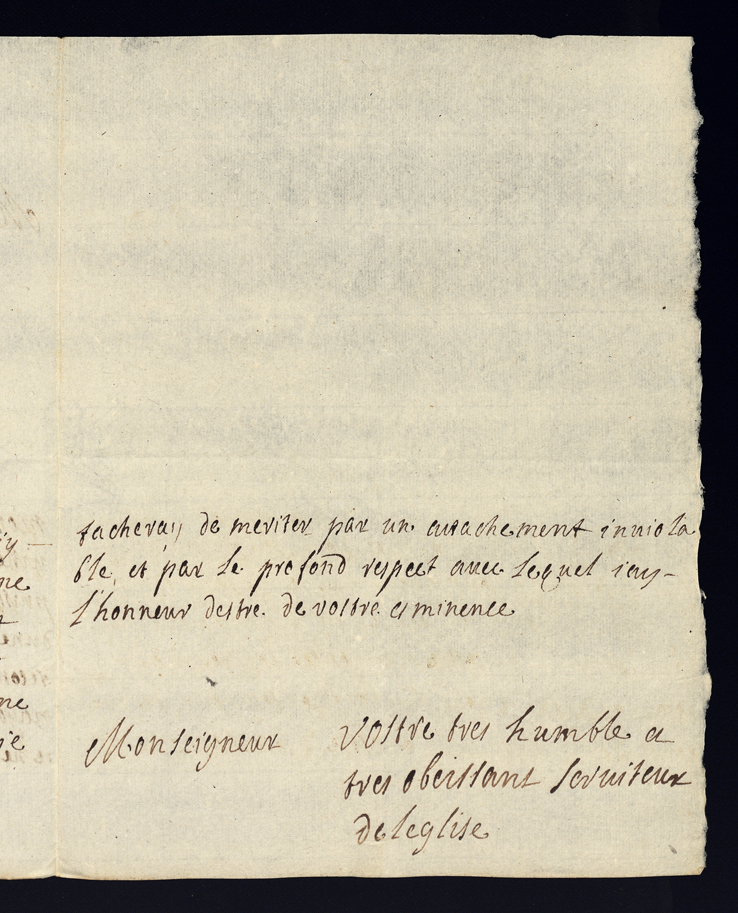 tacheray de meriter par un attachement inviola
ble, et par le profond respect avec lequel iay-
l'honneur destre de vostre eminence
Monseigneur
Vostre tres humble et
tres obeissant serviteur
deleglise